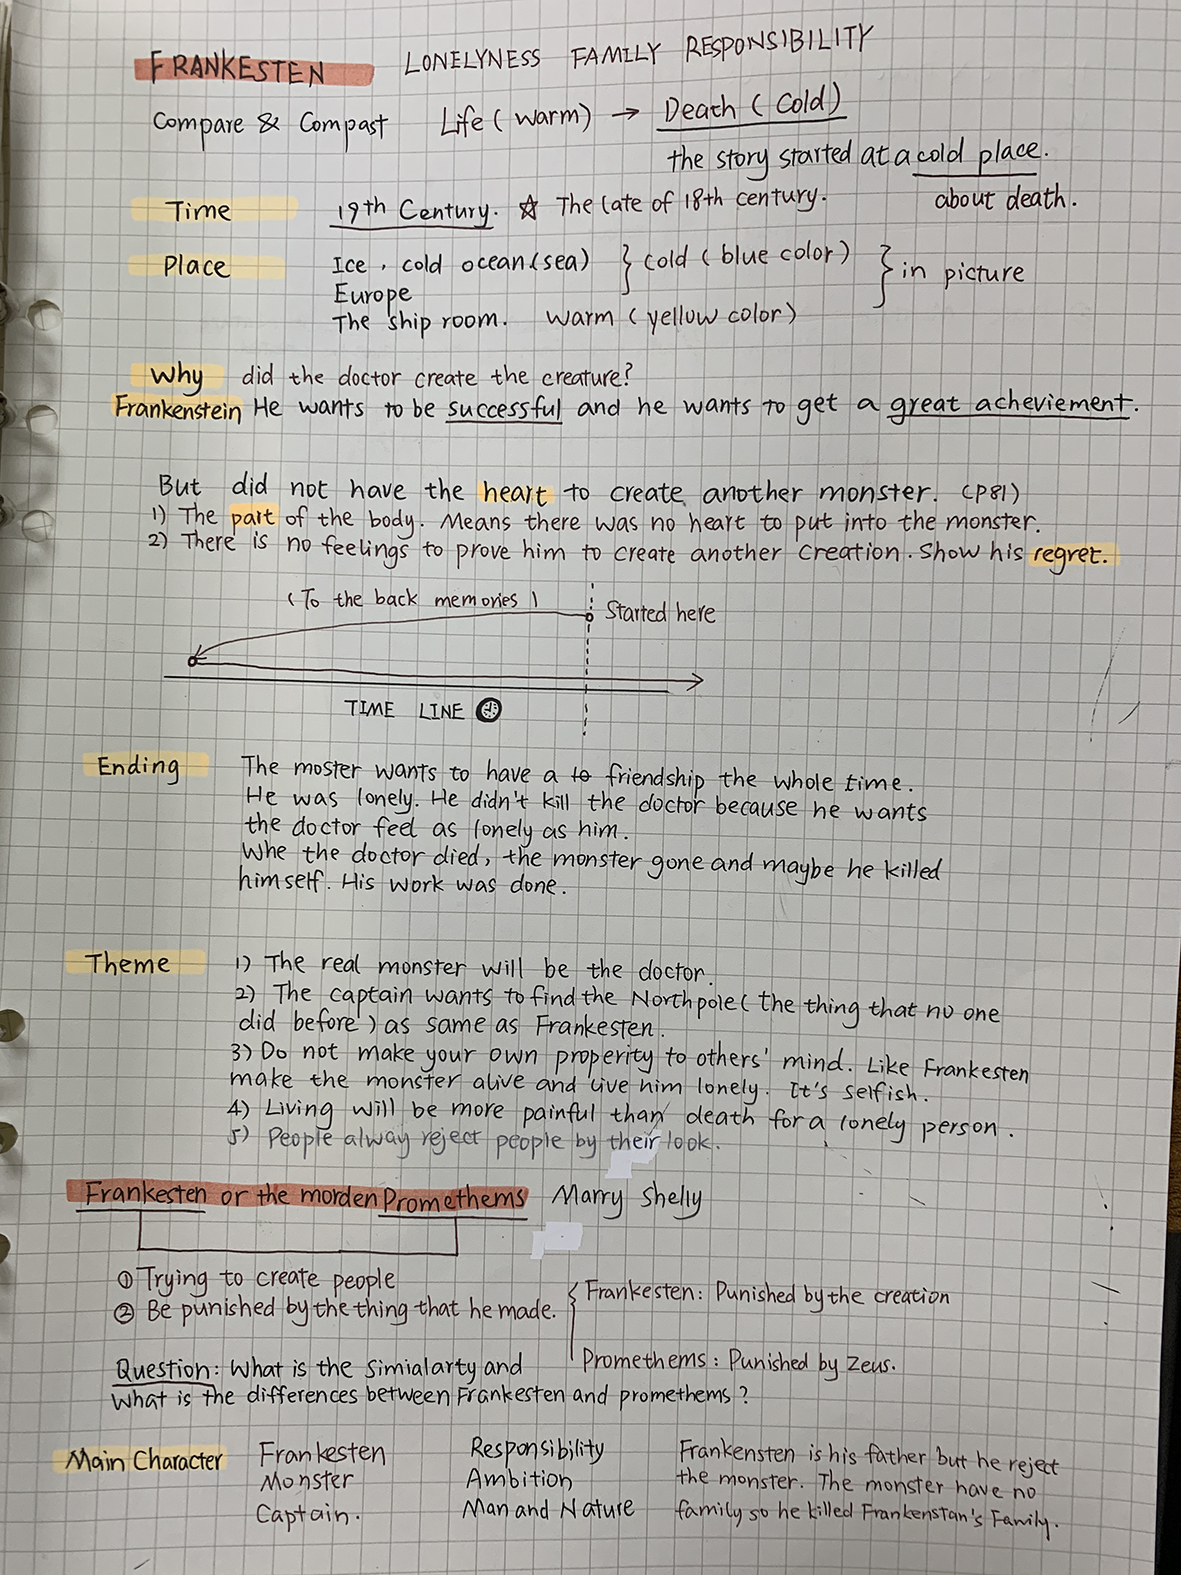 FRANKESTEN LONELYNESS FAMILY RESPONSIBILITY
Compare & Compast Life (warm) → Death (Cold)
the story started at a cold place.
about death.
Time 19th Century. ☆ The late of 18th century.
Place Ice, cold ocean (sea) } cold (blue color) } in picture
Europe
The ship room. warm (yellow color)
Why did the doctor create the creature?
Frankenstein He wants to be successful and he wants to get a great acheviement.
But did not have the heart to create another monster. (P81)
1) The part of the body. Means there was no heart to put into the monster.
2) There is no feelings to prove him to create another creation. Show his regret.
(To the back memories)
Started here
TIME LINE
Ending The moster wants to have a to friendship the whole time.
He was lonely. He didn't kill the doctor because he wants
the doctor feel as lonely as him.
Whe the doctor died, the monster gone and maybe he killed
himself. His work was done.
Theme 1) The real monster will be the doctor.
2) The captain wants to find the Northpole (the thing that no one
did before) as same as Frankesten.
3) Do not make your own properity to others' mind. Like Frankesten
make the monster alive and live him lonely. It's selfish.
4) Living will be more painful than death for a lonely person.
5) People alway reject people by their look.
Frankesten or the morden Promethems Marry Shelly
① Trying to create people
② Be punished by the thing that he made. { Frankesten: Punished by the creation
Promethems: Punished by Zeus.
Question: What is the simialarty and
what is the differences between Frankesten and promethems?
Main Character Frankesten Responsibility Frankensten is his father but he reject
Monster Ambition the monster. The monster have no
Captain. Man and Nature family so he killed Frankenstan's Family.